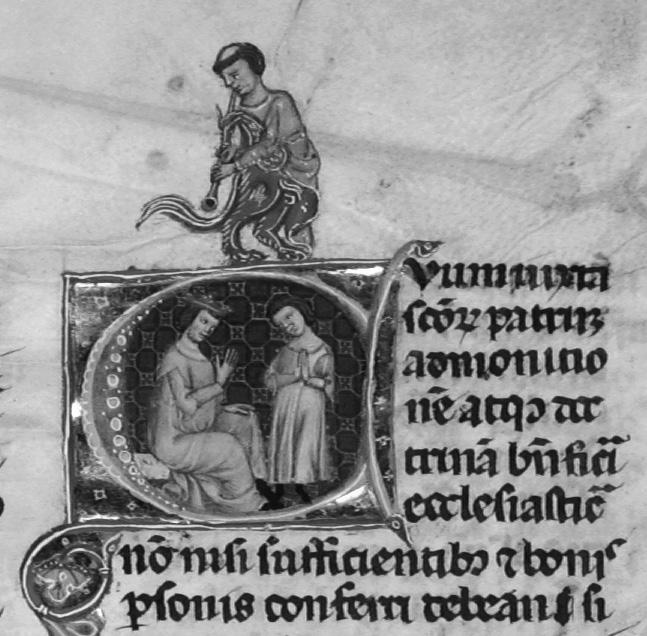 vum iuxta
scōꝝ patrum
admonitio
nē atqꝫ doc
trinā bn̄ficiū
ecclesiasticū
nō nisi sufficientibꝫ ⁊ bonis
ꝑsonis conferri debeant si